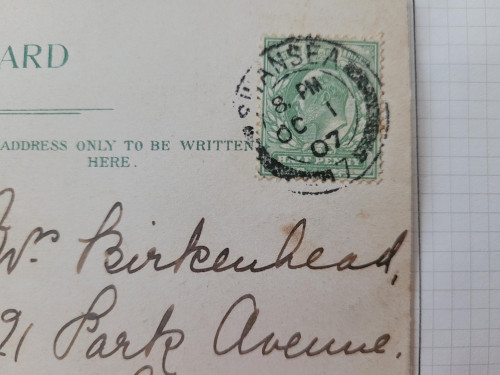 ARD
ADDRESS ONLY TO BE WRITTEN
HERE.
SWANSEA
8 PM
OC 1
07
HALFPENNY
Mrs Birkenhead,
21 Park Avenue.